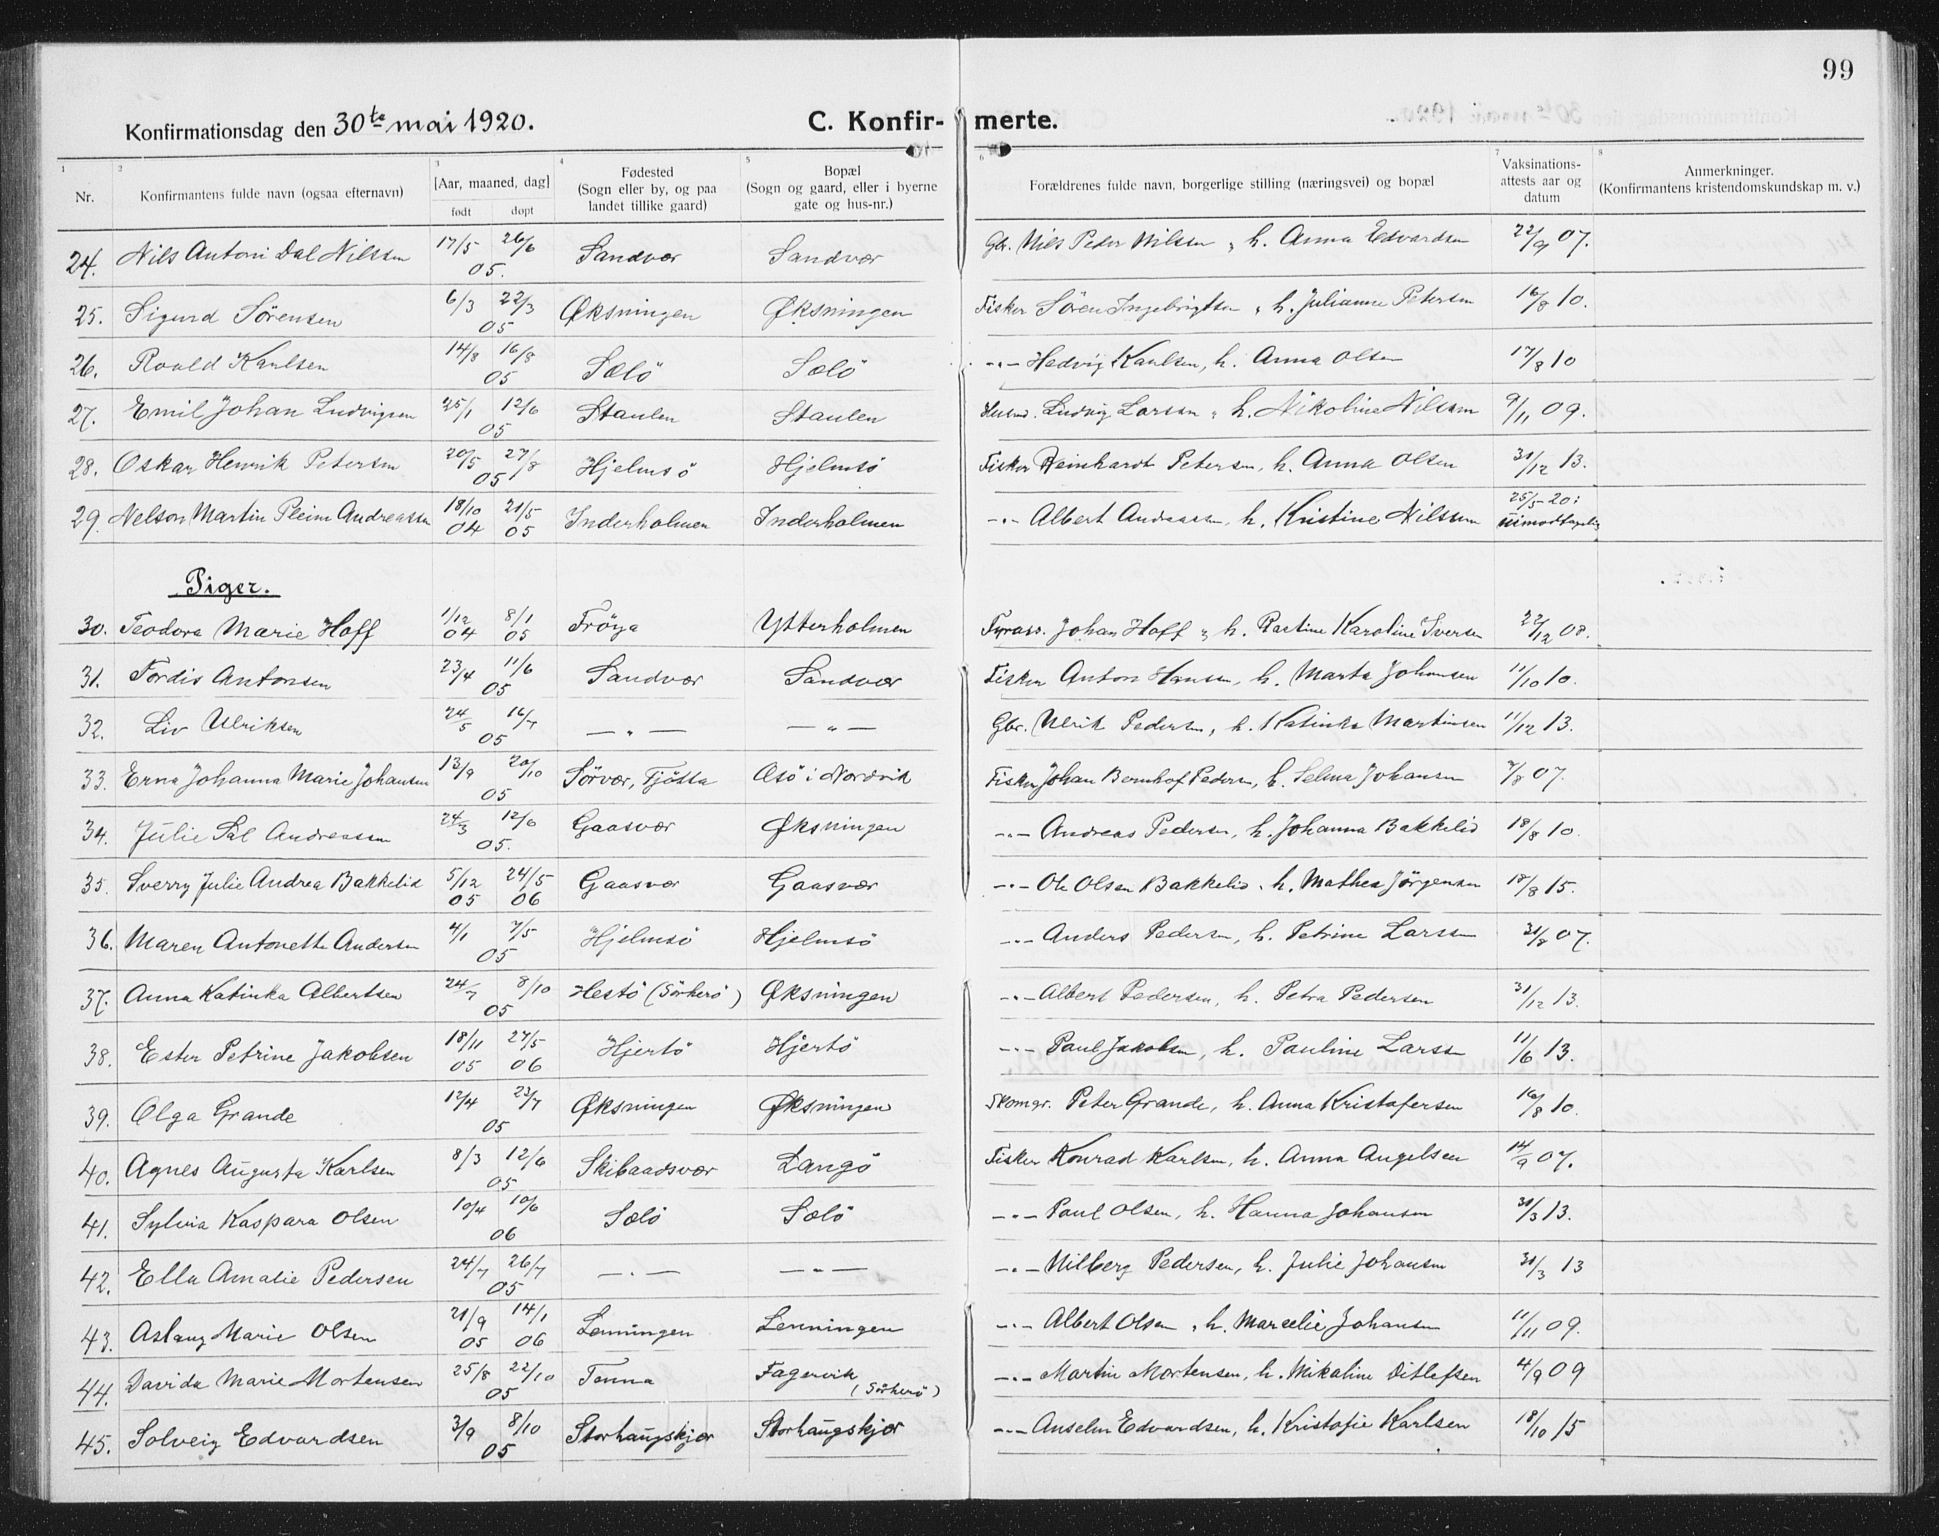 99
Konfirmationsdag den 30te mai 1920. C. Konfirmerte.
1 2 3 4 5 6 7 8
Nr. Konfirmantens fulde navn (ogsaa efternavn) [Aar, maaned, dag] født døpt Fødested (Sogn eller by, og paa landet tillike gaard) Bopæl (Sogn og gaard, eller i byerne gate og hus-nr.) Forældrenes fulde navn, borgerlige stilling (næringsvei) og bopæl Vaksinations-attests aar og datum Anmerkninger. (Konfirmantens kristendomskundskap m. v.)
24. Nils Antoni Dal Nilssen 17/5 26/6 05. Sandvær Sandvær Gbr. Nils Peder Nilssen, h. Anna Edvardsen 22/9 07.
25. Sigurd Sörensen 6/3 22/3 05 Øksningen Øksningen Fisker Sören Ingebrigtsen, h. Julianne Petersen 16/8 10.
26. Roald Karlsen 14/8 16/8 05 Sælö Sælö -"- Hedvig Karlsen, h. Anna Olsen 17/8 10
27. Emil Johan Ludvigsen 25/1 12/6 05 Staulen Staulen Husmd. Ludvig Larssen, h. Nikoline Nilssen 9/11 09.
28. Oskar Henrik Petersen 20/5 27/8 05 Hjelmsö Hjelmsö Fisker Reinhardt Petersen, h. Anna Olsen 31/12 13.
29. Nelson Martin Pleim Andreassen 18/10 04 21/5 05 Inderholmen Inderholmen -"- Albert Andreassen, h. Kristine Nilssen 25/5-20: uimodtagelig
Piger.
30. Teodora Marie Hoff 1/12 04 8/1 05 Fröya Ytterholmen Fyrass. Johan Hoff, h. Bartine Karoline Iversen 22/12 08.
31. Tordis Antonsen 23/4 11/6 05 Sandvær Sandvær Fisker Anton Hansen, h. Marta Johansen 11/10 10.
32. Liv Ulriksen 24/5 16/7 05 -"- -"- Gbr. Ulrik Pedersen, h. Katinka Martinsen 11/12 13.
33. Erna Johanna Marie Johansen 13/9 20/10 05 Sörvær, Tjötta Asö i Nordvik Fisker Johan Bernhof Pedersen, h. Selma Johansen 7/8 07.
34. Julie Sal Andreassen 24/3 12/6 05. Gaasvær Øksningen -"- Andreas Pedersen, h. Johanna Bakkelid 18/8 10.
35. Sverry Julie Andrea Bakkelid 5/12 05 24/5 06 Gaasvær Gaasvær -"- Ole Olsen Bakkelid, h. Mathea Jörgensen 18/8 15.
36. Maren Antonette Andersen 4/1 7/5 05 Hjelmsö Hjelmsö -"- Anders Pedersen, h. Petrine Larssen 31/8 07.
37. Anna Katinka Albertsen 24/7 8/10 05 Hestö (Sörherö) Øksningen -"- Albert Pedersen, h. Petra Pedersen 31/12 13.
38. Ester Petrine Jakobsen 18/11 05 27/5 06 Hjertö Hjertö -"- Paul Jakobsen, h. Pauline Larssen 11/6 13.
39. Olga Grande 12/4 23/7 05 Øksningen Øksningen Skomgr. Peter Grande, h. Anna Kristofersen 16/8 10.
40. Agnes Augusta Karlsen 8/3 12/6 05 Skibaadsvær Langö Fisker Konrad Karlsen, h. Anna Angelsen 14/9 07.
41. Sylvia Kaspara Olsen 10/4 10/6 06 Sælö Sælö -"- Paul Olsen, h. Hanna Johansen 31/3 13.
42. Ella Amalie Pedersen 24/7 26/7 05 -"- -"- -"- Hilberg Pedersen, h. Julie Johansen 31/3 13
43. Aslaug Marie Olsen 21/9 05 14/1 06 Lenningen Lenningen -"- Albert Olsen, h. Marselie Johansen 11/11 09.
44. Davida Marie Mortensen 25/8 22/10 05 Tenna Fagervik (Sörherö) -"- Martin Mortensen, h. Mikaline Ditlefsen 4/9 09
45. Solveig Edvardsen 3/9 8/10 05 Storhaugskjær Storhaugskjær -"- Anselm Edvardsen, h. Kristofie Karlsen 18/10 15